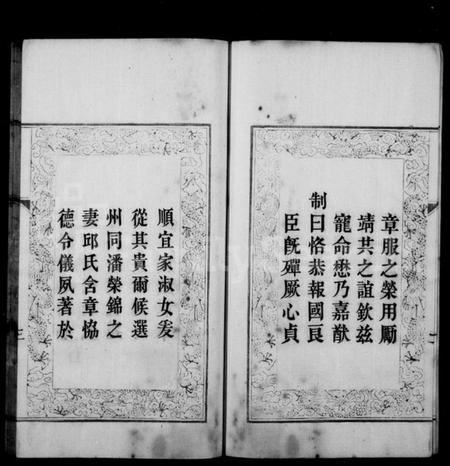 章服之榮用勵
靖共之誼欽兹
寵命懋乃嘉猷
制曰恪恭報國良
臣旣殫厥心貞
順宜家淑女爰
從其貴爾候選
州同潘榮錦之
妻邱氏含章恊
德令儀夙著於
三